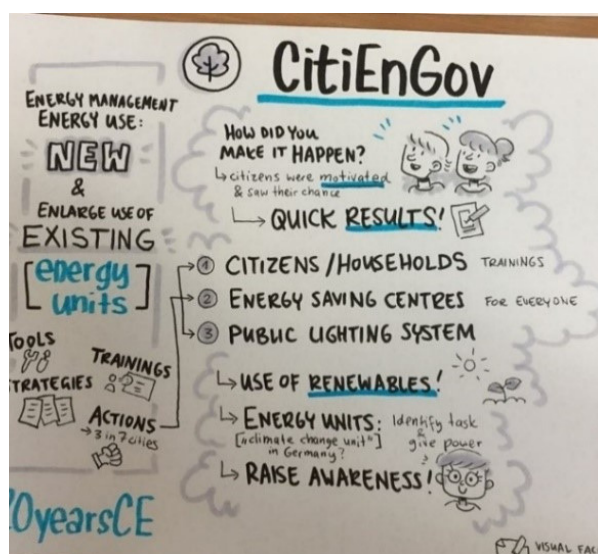 CitiEnGov
ENERGY MANAGEMENT
ENERGY USE:
NEW
&
ENLARGE USE OF
EXISTING
[energy
units]
TOOLS
STRATEGIES
TRAININGS
ACTIONS
→ 3 in 7 cities
0yearsCE
HOW DID YOU
MAKE IT HAPPEN?
↳ citizens were motivated
& saw their chance
↳ QUICK RESULTS!
1 CITIZENS / HOUSEHOLDS TRAININGS
2 ENERGY SAVING CENTRES FOR EVERYONE
3 PUBLIC LIGHTING SYSTEM
↳ USE OF RENEWABLES!
↳ ENERGY UNITS: Identify task
& give power
["climate change unit"
in Germany?]
↳ RAISE AWARENESS!
VISUAL FAC